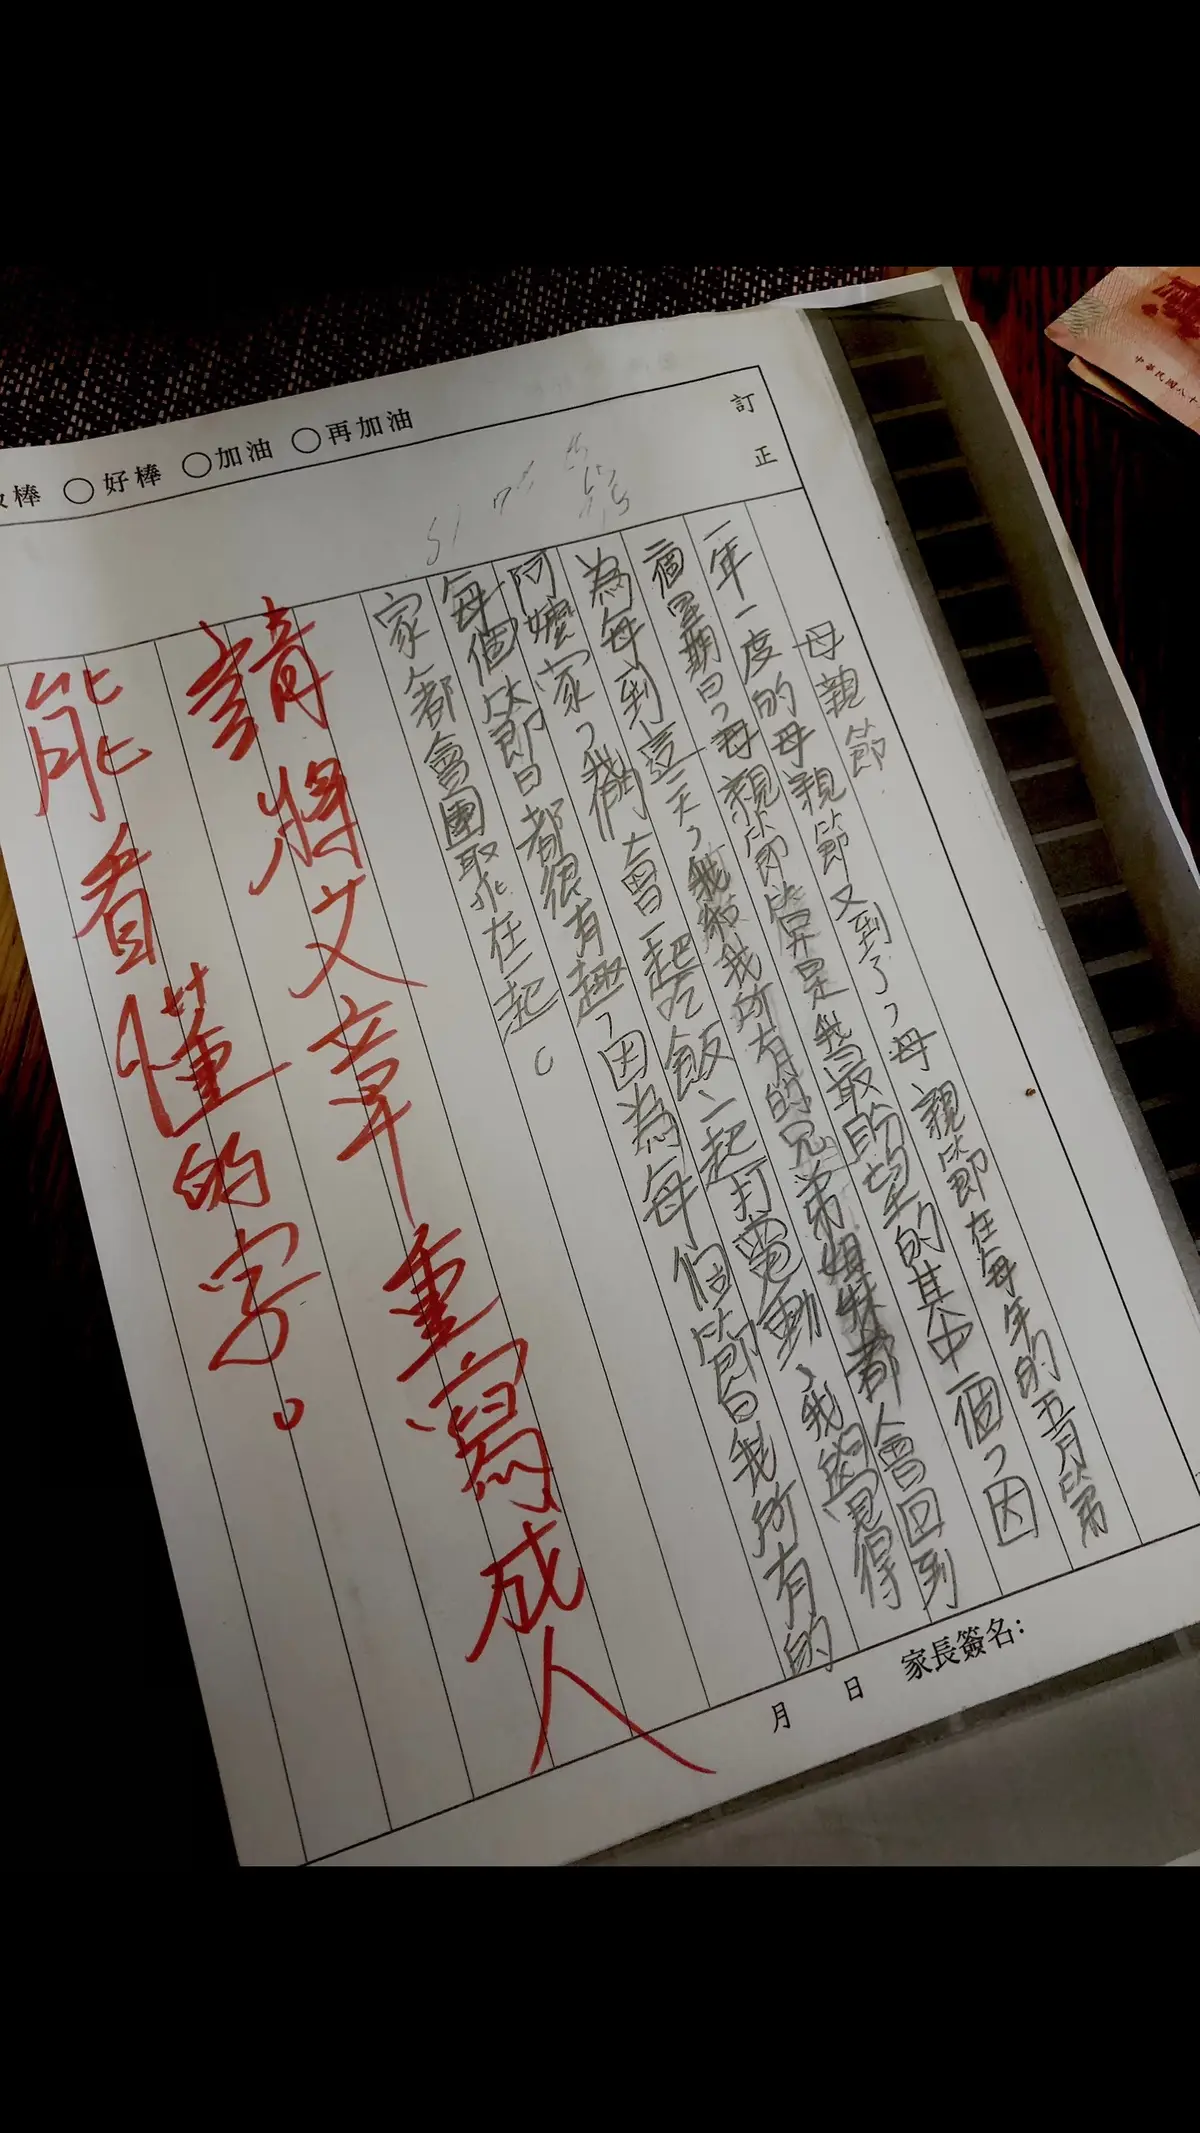 訂正
母親節
一年一度的母親節又到了，母親節在每年的五月第
二個星期日，母親節算是我最盼望的其中一個，因
為每到這天，我給我所有的兄弟姐妹都會回到
阿嬤家，我們會一起吃飯、一起打電動，我覺得
每個節日都很有趣，因為每個節日我所有的
家人都會團聚在一起。
請將文章重寫成人
能看懂的字。
棒 ○好棒 ○加油 ○再加油
月 日 家長簽名：
中華民國八十